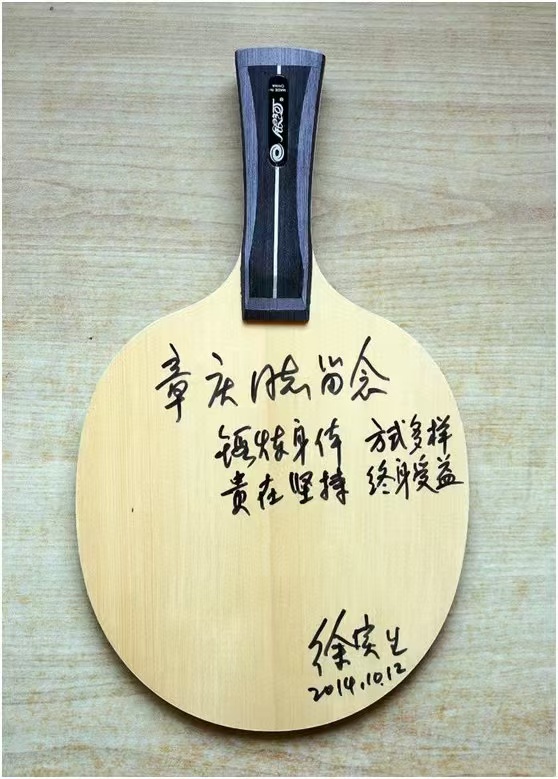 MADE IN
CHINA
章庆同志留念
锻炼身体 方式多样
贵在坚持 终身受益
徐寅生
2014.10.12